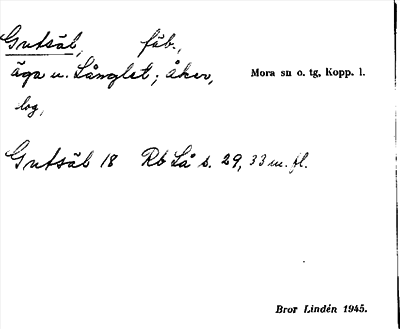 Gutsäl, fäb.,
äga u. Långlet; åker, Mora sn o. tg, Kopp. l.
log,
Gutsäl 18 Rb Lå s. 29, 33 m. fl.
Bror Lindén 1945.